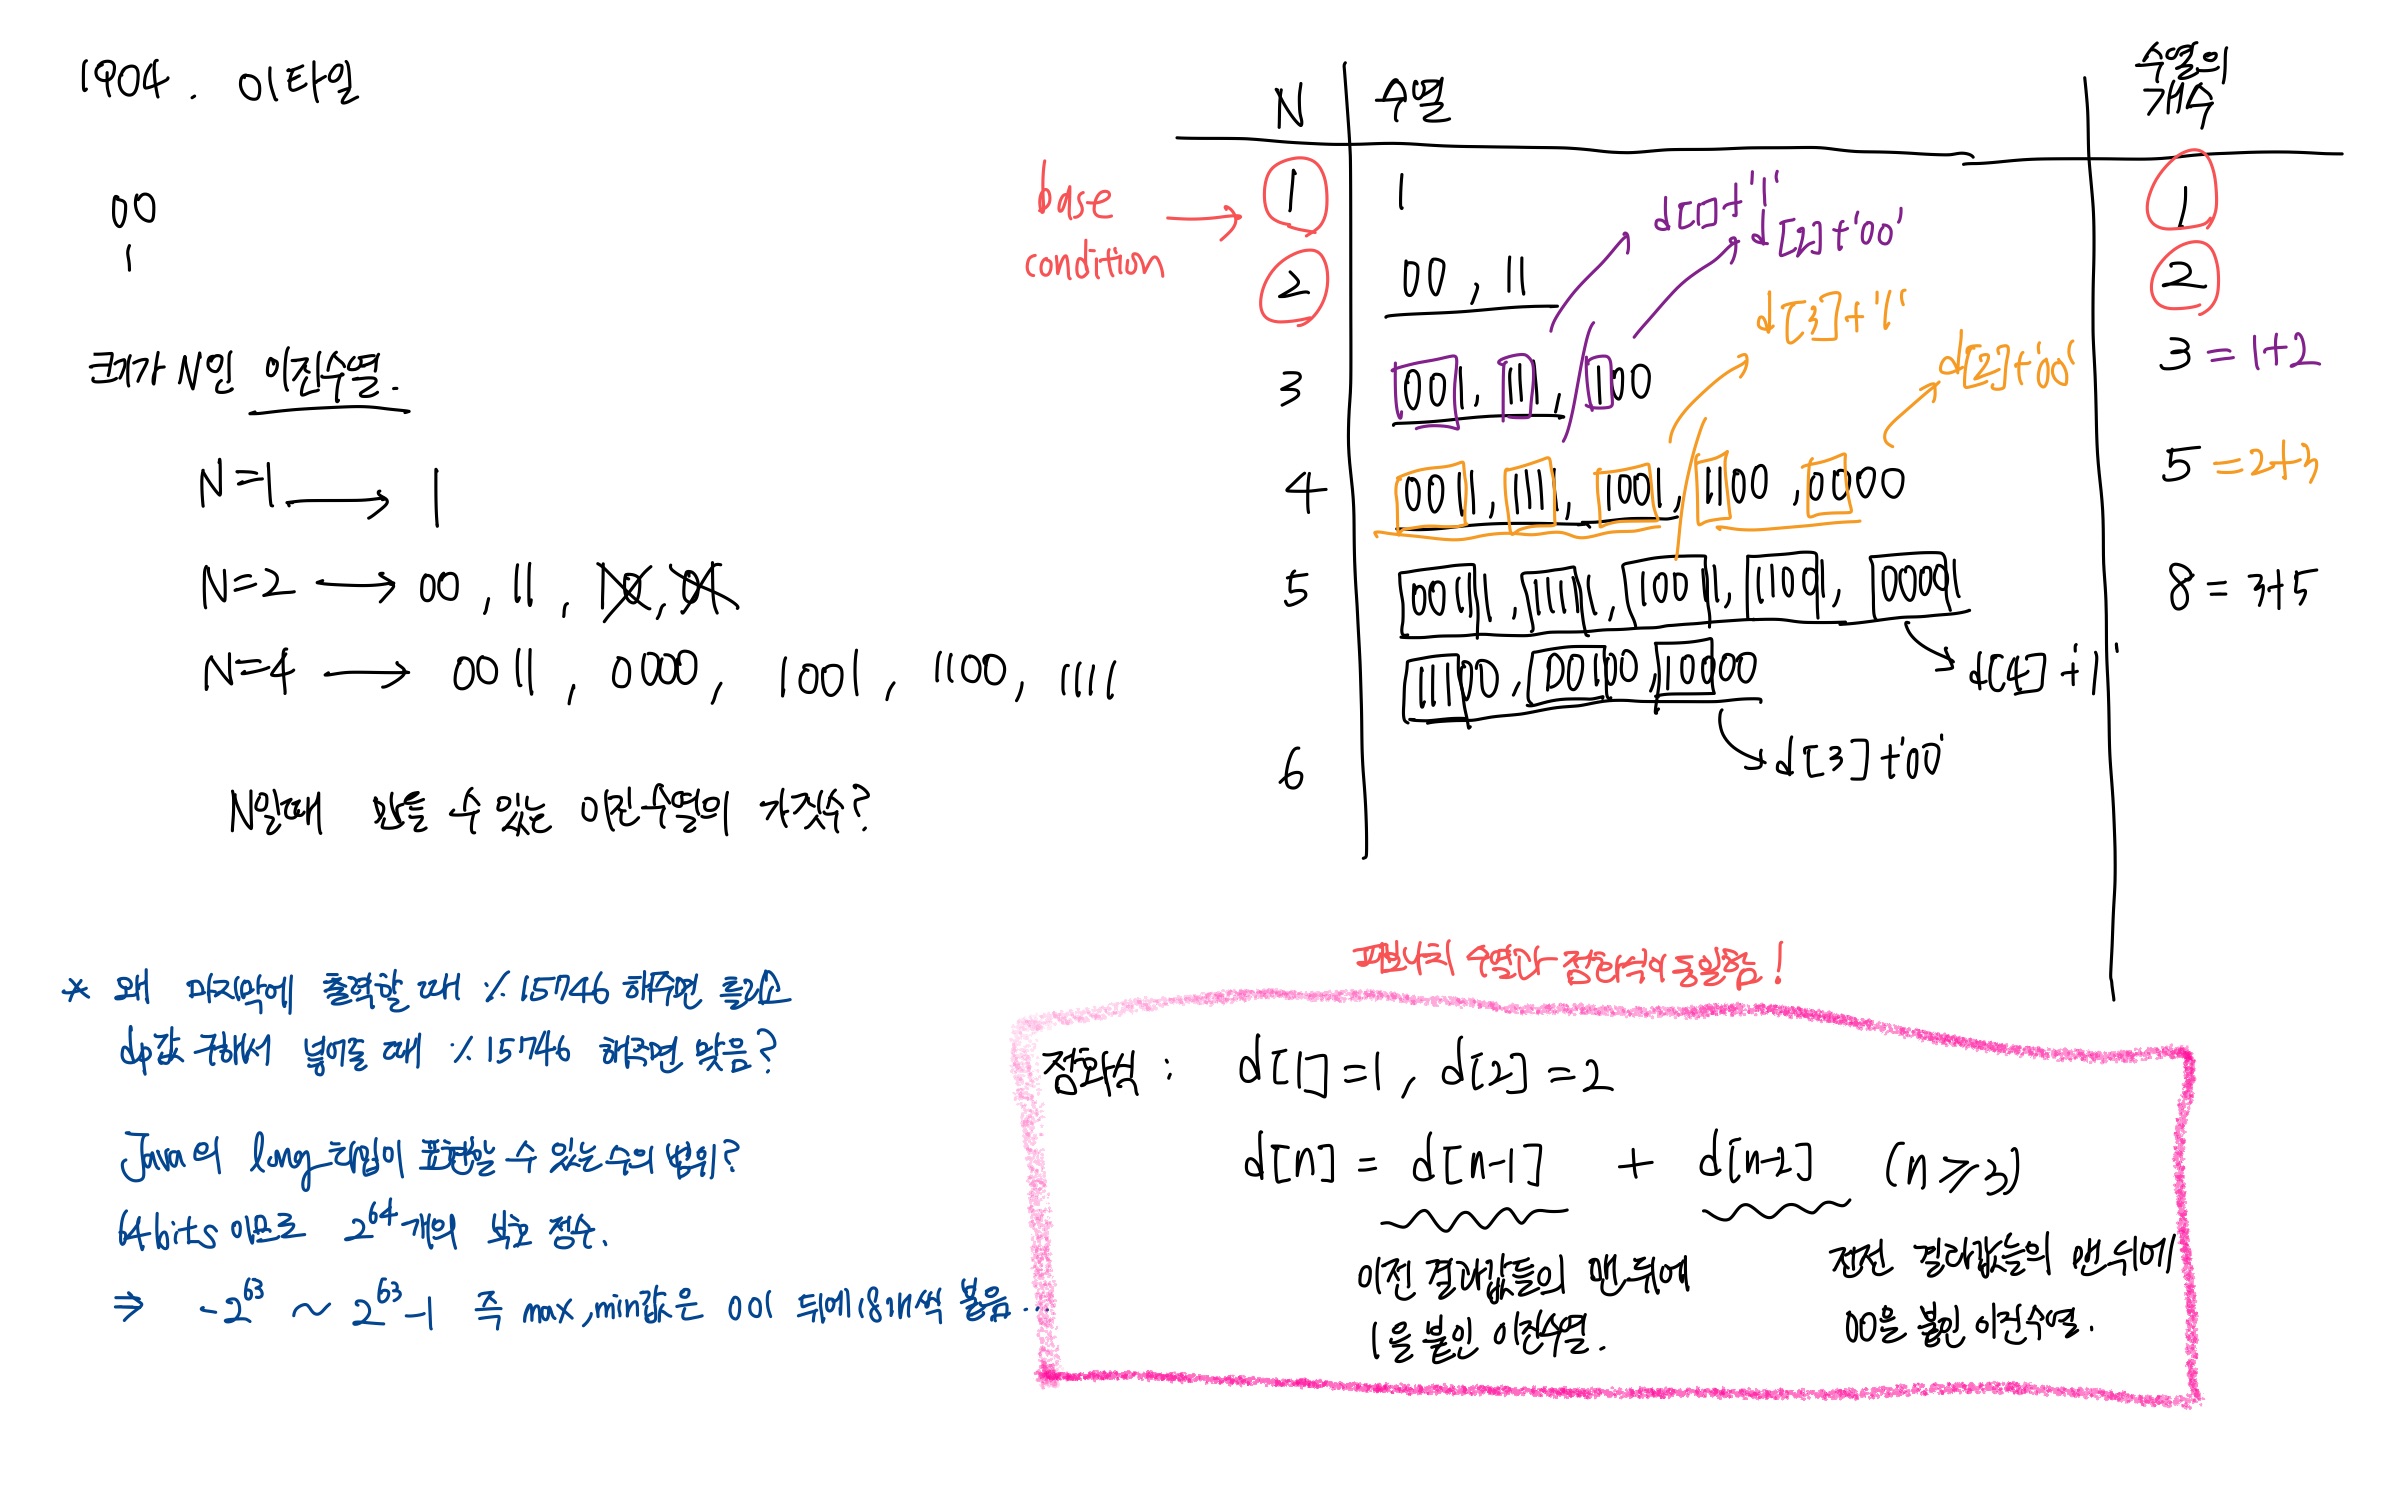 1904. 01타일
00
1
크기가 N인 이진수열.
N=1 → 1
N=2 → 00, 11, 10, 01
N=4 → 0011, 0000, 1001, 1100, 1111
N일때 만들 수 있는 이진수열의 가짓수?
N 수열 수열의 개수
base condition →
1 1 1
d[1]+'1'
d[2]+'00'
2 00, 11 2
d[3]+'1'
d[2]+'00'
3 001, 111, 100 3 = 1+2
4 0011, 1111, 1001, 1100, 0000 5 = 2+3
5 00111, 11111, 10011, 11001, 00001 8 = 3+5
d[4]+'1'
11100, 00100, 10000
d[3]+'00'
6
* 왜 마지막에 출력할 때 % 15746 해주면 틀리고
dp값 구해서 넣어줄 때 % 15746 해주면 맞음?
Java의 long타입이 표현할 수 있는 수의 범위?
64bits 이므로 2⁶⁴개의 부호 정수.
⇒ -2⁶³ ~ 2⁶³-1 즉 max, min값은 0이 뒤에 18개씩 붙음...
피보나치 수열과 점화식이 동일함!
점화식 : d[1]=1, d[2]=2
d[n] = d[n-1] + d[n-2] (n≥3)
이전 결과값들의 맨 뒤에
1을 붙인 이진수열.
전전 결과값들의 맨 뒤에
00을 붙인 이진수열.